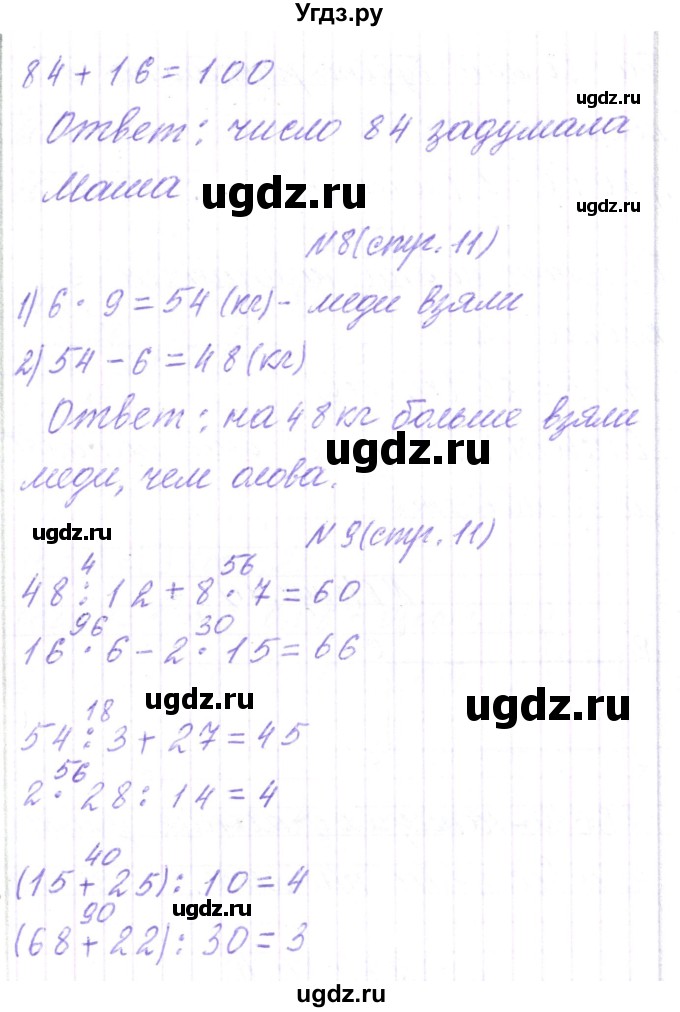 Угдз.ру
84 + 16 = 100
ugdz.ru
Ответ: число 84 задумала
Маша
ugdz.ru
ugdz.ru
№8 (стр. 11)
1) 6 · 9 = 54 (кг) - меди взяли
2) 54 - 6 = 48 (кг)
Ответ: на 48 кг больше взяли
ugdz.ru
меди, чем олова.
ugdz.ru
№9 (стр. 11)
4 56
48 : 12 + 8 · 7 = 60
96 30
16 · 6 - 2 · 15 = 66
ugdz.ru
ugdz.ru
18
54 : 3 + 27 = 45
56
2 · 28 : 14 = 4
40
(15 + 25) : 10 = 4
ugdz.ru
90
(68 + 22) : 30 = 3
ugdz.ru